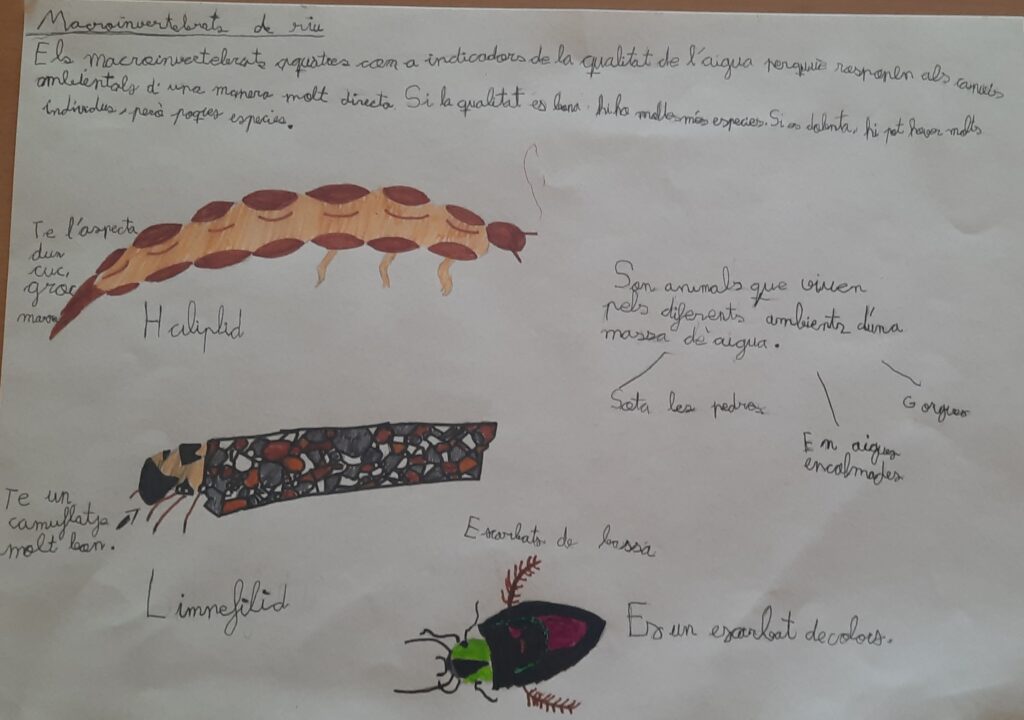 Macroinvertebrats de riu
Els macroinvertebrats aquatres com a indicadors de la qualitat de l'aigua perquè responen als canvis
ambientals d'una manera molt directa. Si la qualitat es bona hi ha moltes més especies. Si es dolenta, hi pot haver molts
individus, però poques especies.
Te l'aspecta
dun
cuc,
groc
marro
Haliplid
Son animals que viuen
pels diferents ambients d'una
massa de aigua.
Sota les pedres
En aigues
encalmades
Gorgues
Te un
camuflatje
molt bon.
Limnefilid
Escarbats de bassa
Es un escarbat de colors.